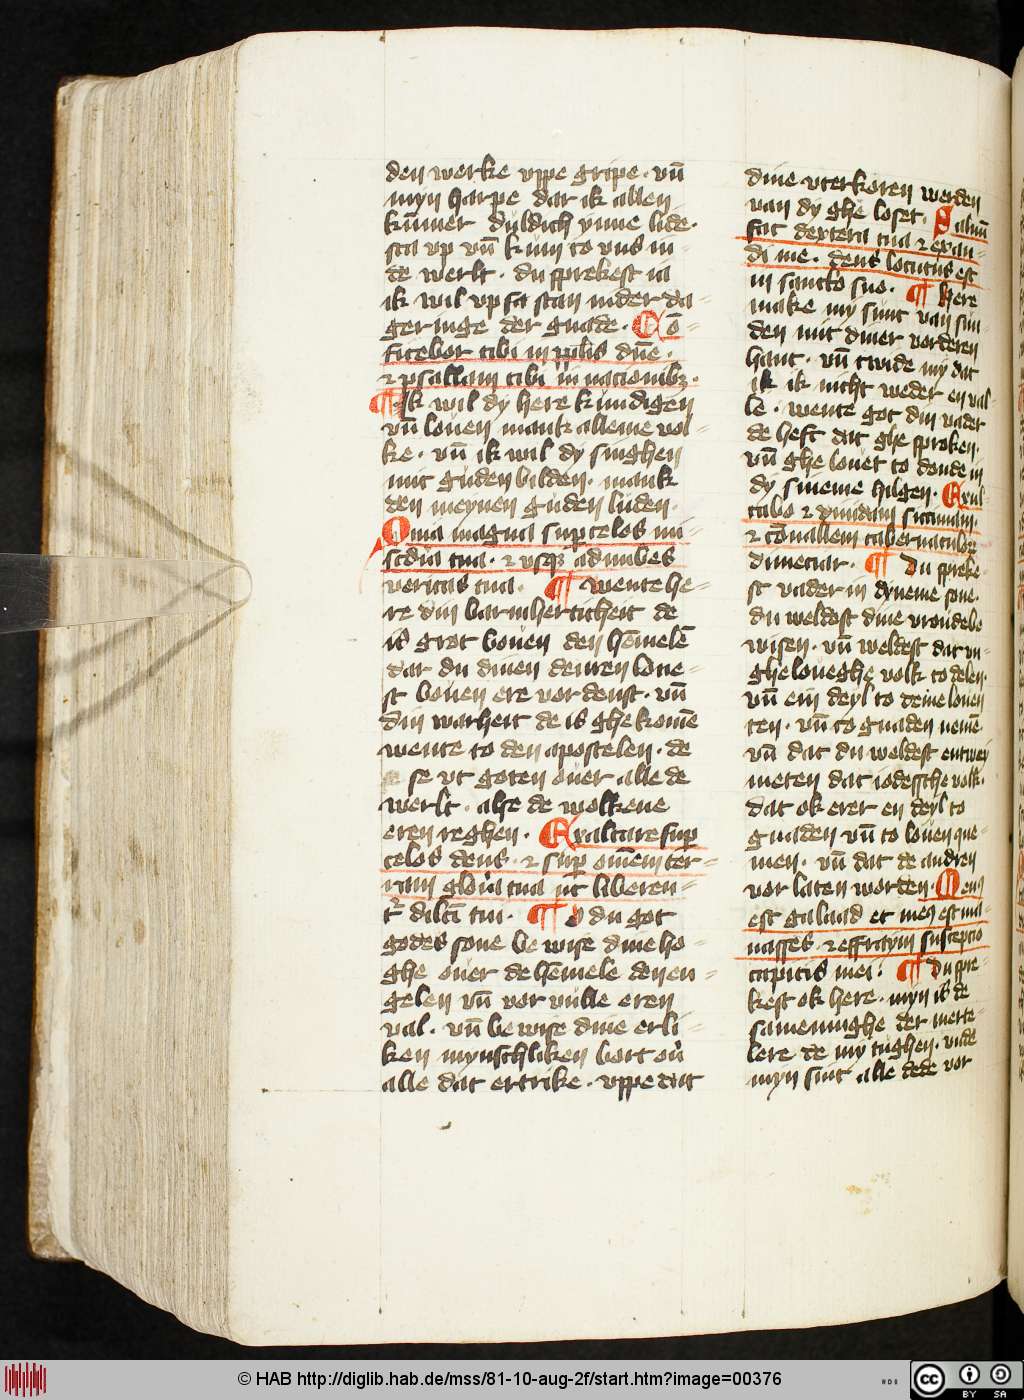 den werke vppe gripe · vn̄
myn harpe dar ik allen
kūmer duldich ynne lide·
sta vp vn̄ kum to vns in
de werlt · du sprekest ia
ik wil vp sta stan in der da
geringe der gnade · Cō
fitebor tibi in pp̄lis dn̄e ·
⁊ psallam tibi in nacionibꝫ ·
¶ Ik wil dy here kundigen
vn̄ louen mank alleme vol
ke · vn̄ ik wil dy singhen
mit guden bilden · mank
den meynen guden luden ·
Qm̄a magna sup celos mi
scd̄ia tua · ⁊ vsqꝫ ad nubes
veritas tua · ¶ Wente he
re din barmherticheit de
is grot bouen den hēmelē
dar du dinen deinren lone
st bouen ere vordenst · vn̄
din warheit de is ghekomē
wente to den apostelen · de
se vt goten ouer alle de
werlt · alse de wolkene
eren reghen · Exaltare sup
celos deus · ⁊ sup omēm ter
ram gloria tua ut liberen
tr̄ dilc̄i tui · ¶ O du got
godes sone bewise dine ho
ghe ouer de hēmele den en
gelen vn̄ vor vulle eren
val · vn̄ bewise dine erli
ken mynschliken bort ou̅
alle dat ertrike · vppe dat
dine vterkoren werden
van dy ghe loset · Saluū
fac dextera tua ⁊ exau
di me · deus locutus est
in sancto suo · ¶ Here
make my sunt van sun
den mit diner vorderen
hant · vn̄ twide my dat
ik ik nicht weder en val
le · wente got din vader
de heft dat ghe sproken·
vn̄ ghe louet to donde in
dy sineme hilgen · Exul
tabo ⁊ diuidam siccimam ·
⁊ cōuallem tabernaculoꝝ
dimeciar · ¶ Du spreke
st vader in dyneme sone·
du weldest dine vroudebe
wisen · vn̄ weldest dat vn
ghe loueghe volk to delen·
vn̄ ein deyl to deme louen
ten · vn̄ to gnaden nemē·
vn̄ dat du weldest entwey
meten dat iodessche volk·
dat ok erer en deyl to
gnaden vn̄ to louen que
men · vn̄ dat de andren
vor laten worden · Meꝰ
est galaad et meꝰ est ma
nasses · ⁊ effraym susceptio
capitis mei · ¶ Du spre
kest ok here · myn is de
samenninghe der merte
lere de my tughen · vnde
myn sint alle dede vor
© HAB http://diglib.hab.de/mss/81-10-aug-2f/start.htm?image=00376
HAB
CC BY SA